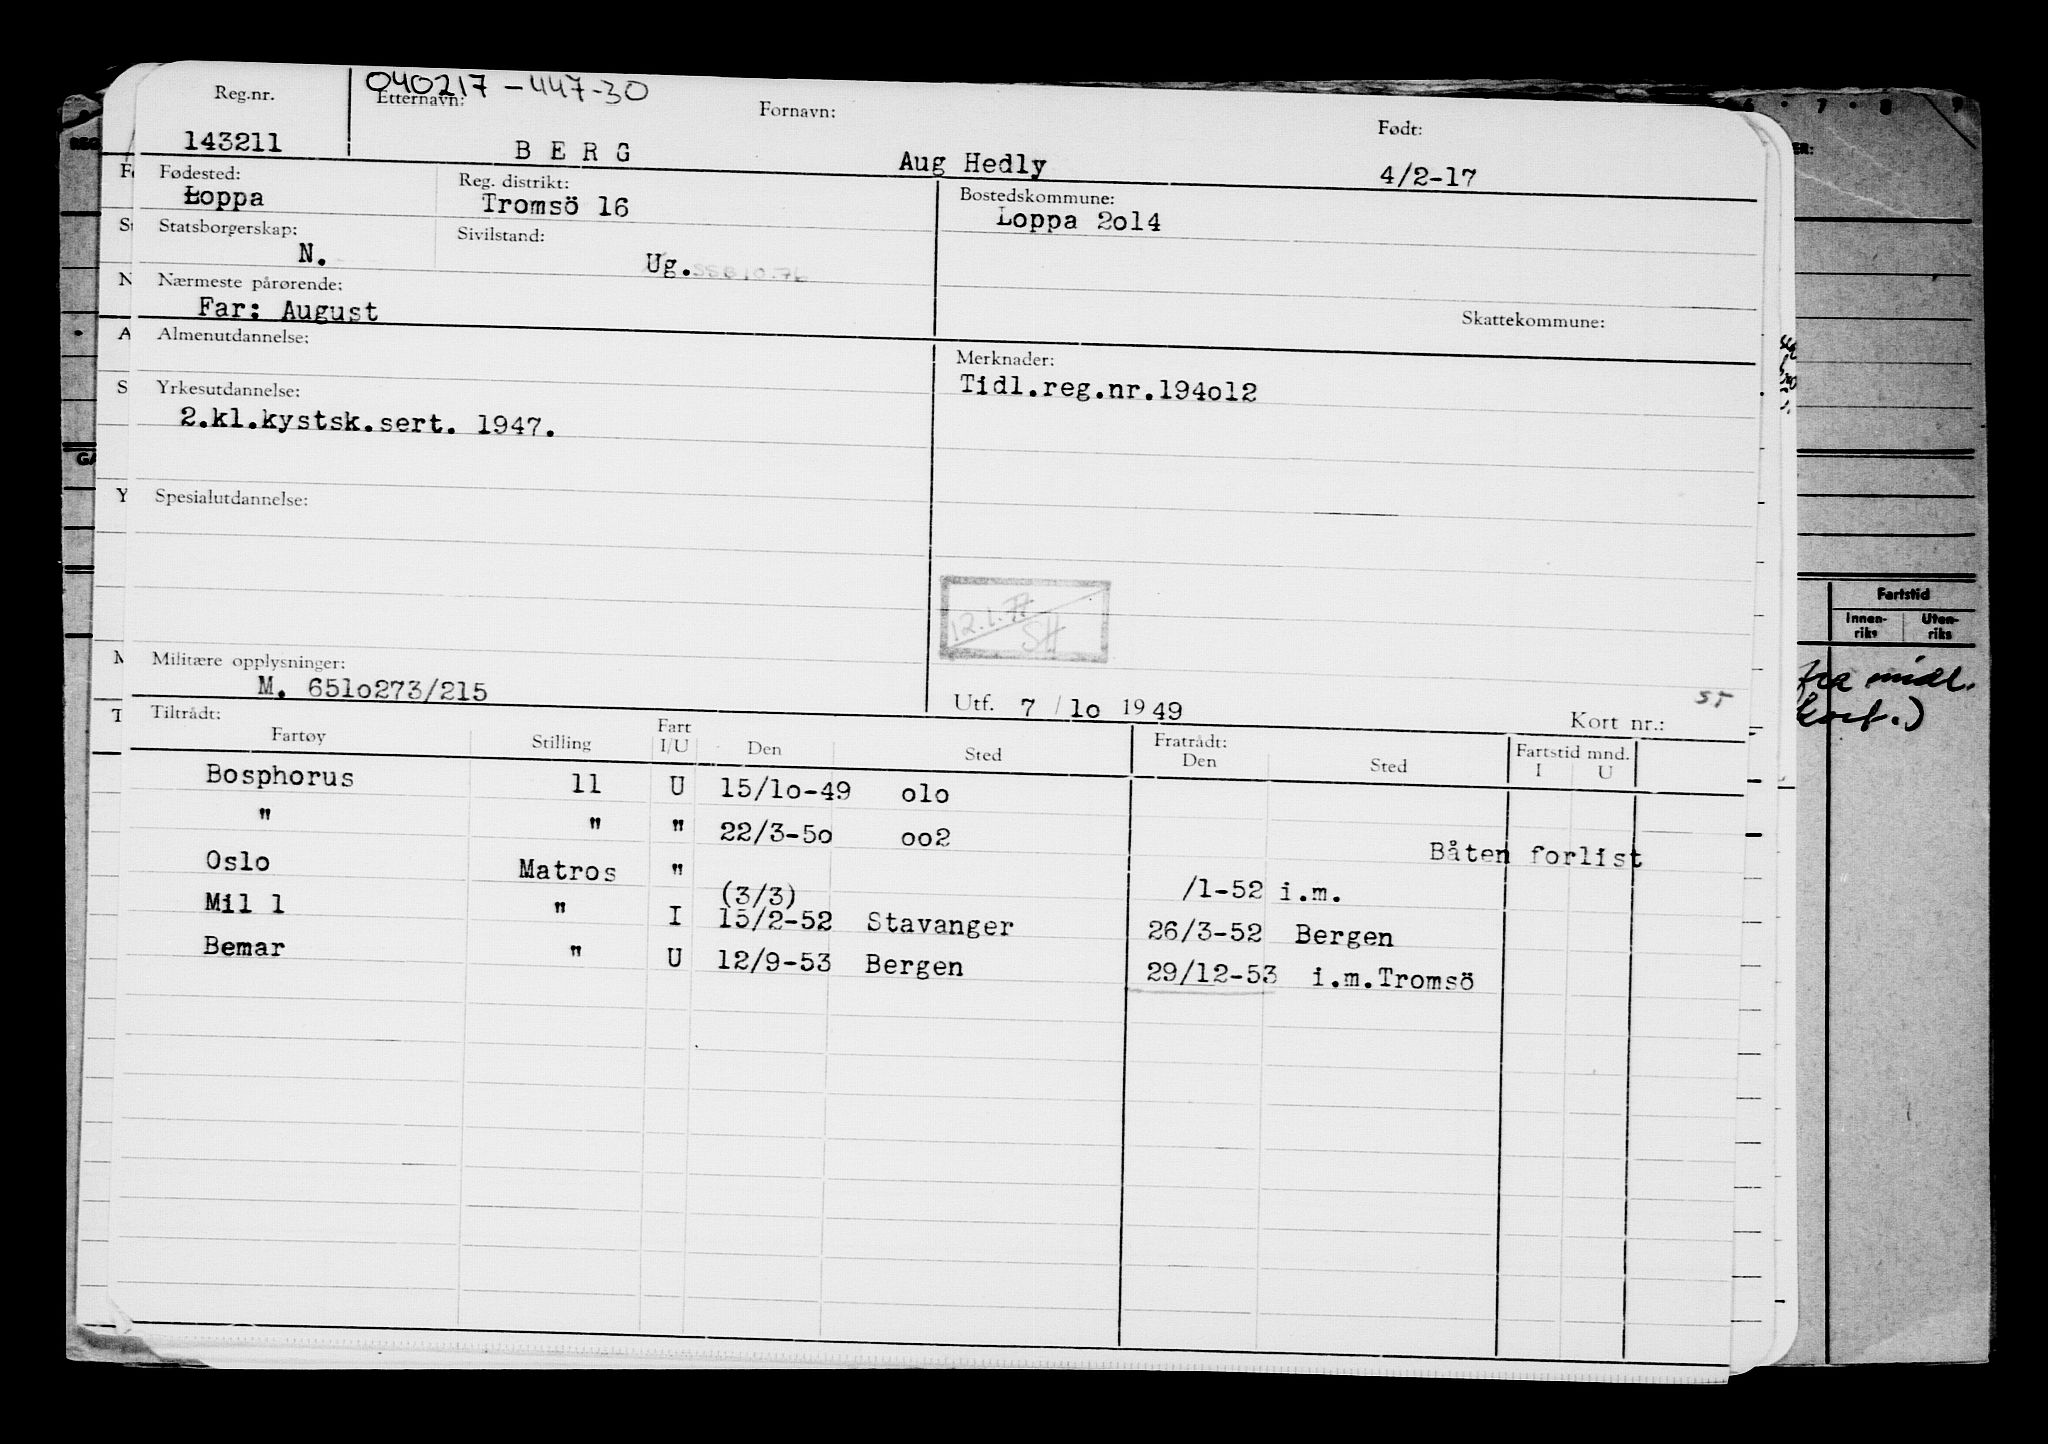 040217-447-30
Reg.nr. Etternavn: Fornavn: Født:
143211 BERG Aug Hedly 4/2-17
Fødested: Reg. distrikt: Bostedskommune:
Loppa Tromsö 16 Loppa 2o14
Statsborgerskap: Sivilstand:
N. Ug.
Nærmeste pårørende:
Far: August Skattekommune:
Almenutdannelse: Merknader:
Tidl.reg.nr.194o12
Yrkesutdannelse:
2.kl.kystsk.sert. 1947.
Spesialutdannelse:
12.1.77
SH
Militære opplysninger:
M. 651o273/215 Utf. 7 / 1o 1949 Kort nr.:
ST
Tiltrådt: Fratrådt:
Fartøy Stilling Fart I/U Den Sted Den Sted Fartstid mnd. I U
Bosphorus 11 U 15/1o-49 o1o
" " " 22/3-5o oo2 Båten forlist
Oslo Matros " /1-52 i.m.
(3/3)
Mil 1 " I 15/2-52 Stavanger 26/3-52 Bergen
Bemar " U 12/9-53 Bergen 29/12-53 i.m.Tromsö
7 8 9
Fartstid
Innen-riks Uten-riks
fra midl.
kort.)